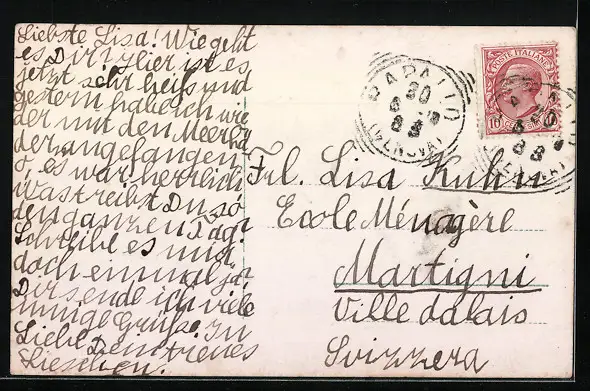 Liebste Lisa! Wie geht
es Dir? Hier ist es
jetzt sehr heiß und
gestern hab ich wie
der mit den Meerbä
der angefangen
o, es war herrlich
was treibst Du so
den ganzen Tag?
Schreibe es mir
doch einmal, ja?
Dir sende ich viele
innige Grüße. In
Liebe Dein treues
Lieschen.
POSTE ITALIANE
10
RAPALLO
30
6
(GENOVA)
Frl. Lisa Kuhn
Ecole Ménagère
Martigni
Ville dalais
Svizzera